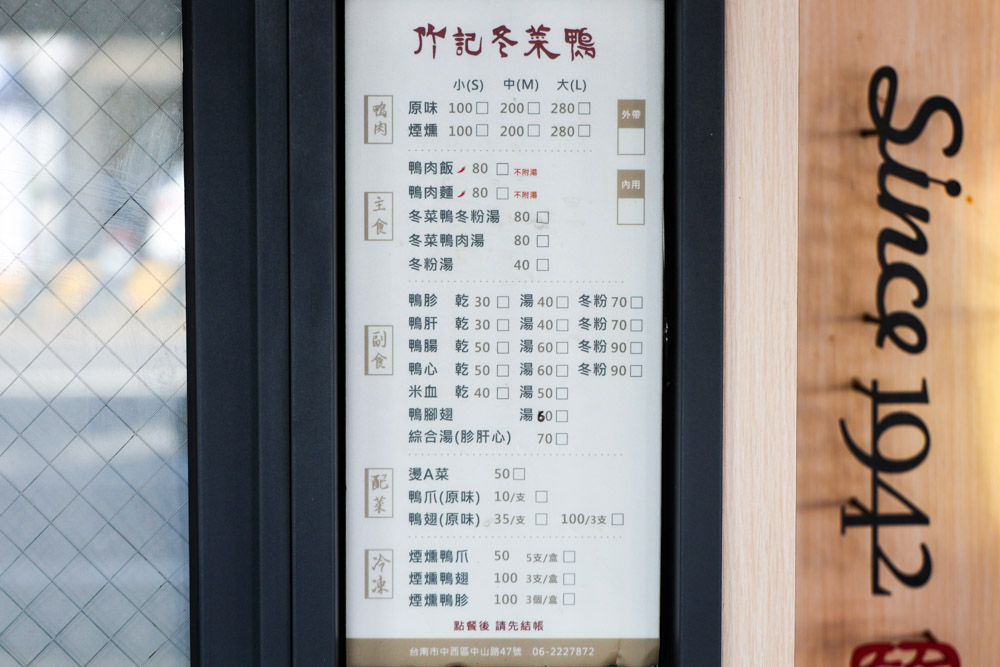 竹記冬菜鴨
小(S) 中(M) 大(L)
鴨肉
原味 100□ 200□ 280□
煙燻 100□ 200□ 280□
外帶
內用
主食
鴨肉飯 80 □ 不附湯
鴨肉麵 80 □ 不附湯
冬菜鴨冬粉湯 80 □
冬菜鴨肉湯 80 □
冬粉湯 40 □
副食
鴨胗 乾 30 □ 湯 40□ 冬粉 70□
鴨肝 乾 30 □ 湯 40□ 冬粉 70□
鴨腸 乾 50 □ 湯 60□ 冬粉 90□
鴨心 乾 50 □ 湯 60□ 冬粉 90□
米血 乾 40 □ 湯 50□
鴨腳翅 湯 60□
綜合湯(胗肝心) 70□
配菜
燙A菜 50□
鴨爪(原味) 10/支 □
鴨翅(原味) 35/支 □ 100/3支□
冷凍
煙燻鴨爪 50 5支/盒 □
煙燻鴨翅 100 3支/盒 □
煙燻鴨胗 100 3個/盒 □
點餐後 請先結帳
台南市中西區中山路47號 06-2227872
Since 1942